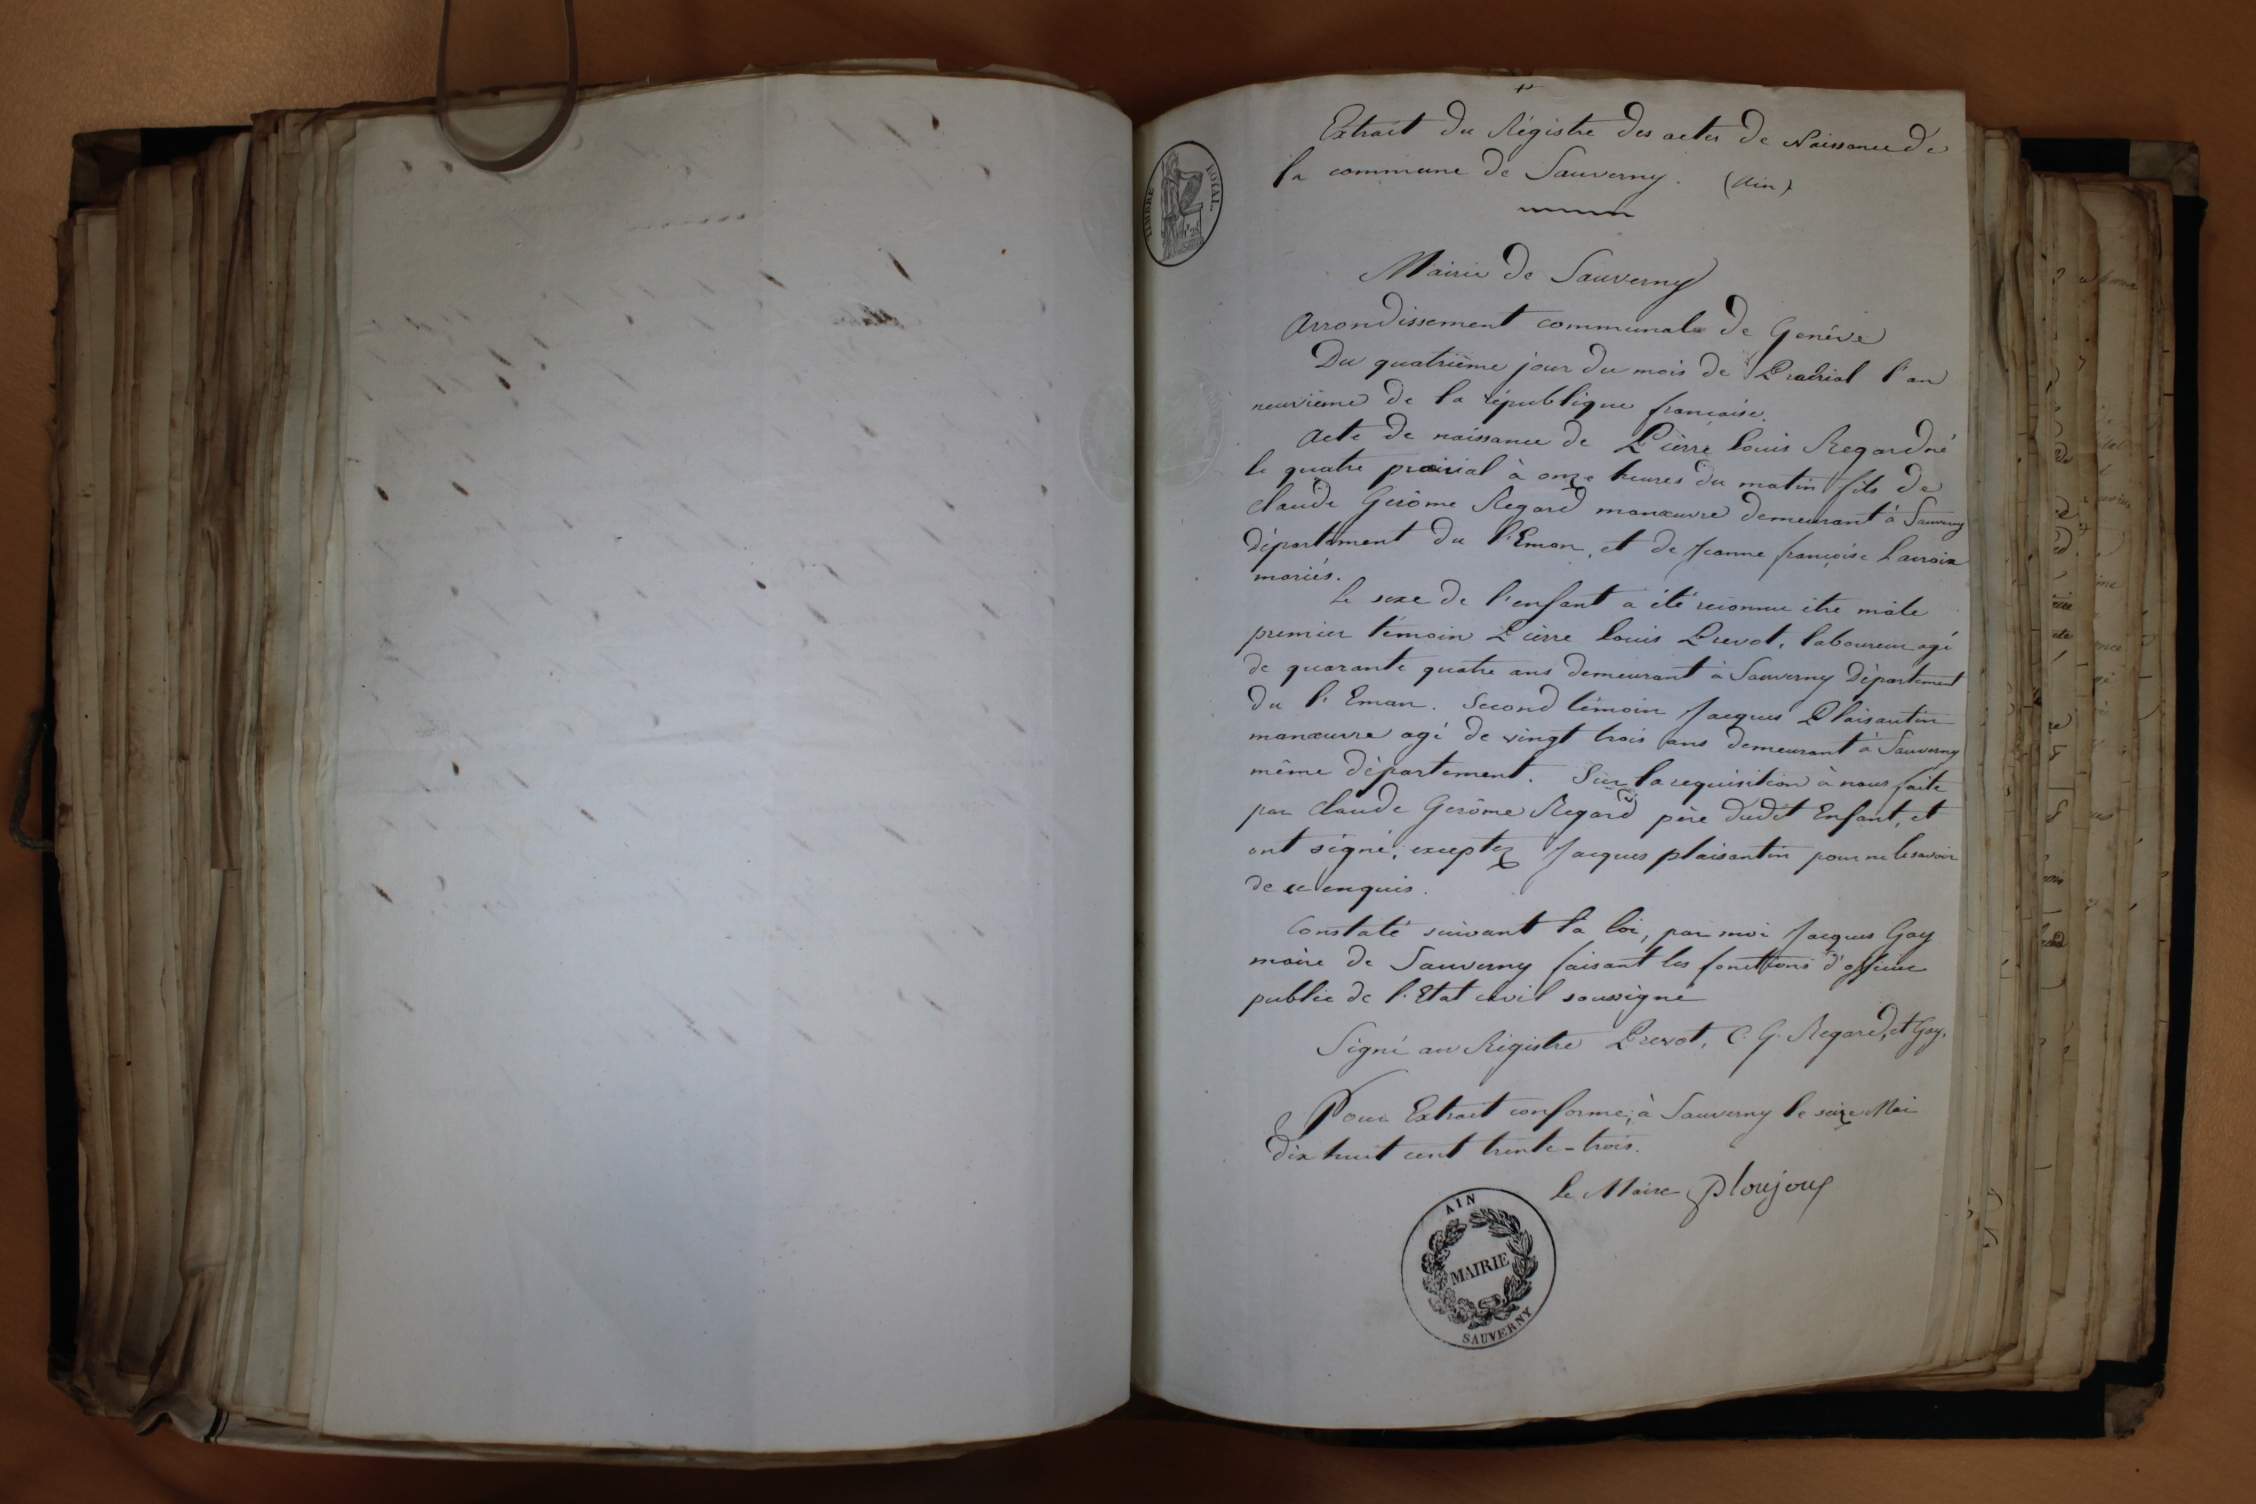 TIMBRE ROYAL.
Extrait du Régistre des actes de Naissance de
la commune de Sauverny. (Ain)
Mairie de Sauverny
Arrondissement communale de Genève
Du quatrième jour du mois de Prairial l'an
neuvième de la république française.
Acte de naissance de Pièrre Louis Regard né
le quatre prairial à onze heures du matin fils de
Claude Gerôme Regard manœuvre demeurant à Sauverny
Département du l'Eman, et de Jeanne françoise Lacroix
mariés.
Le sexe de l'enfant a été reconnu être mâle
premier témoin Pièrre Louis Prevot, laboureur agé
de quarante quatre ans demeurant à Sauverny Département
du l'Eman. Second témoin Jacques Plaisantin
manœuvre agé de vingt trois ans demeurant à Sauverny
même département. Sur la requisition à nous faite
par Claude Gerôme Regard père dudit Enfant, et
ont signé, exceptez Jacques plaisantin pour ne le savoir
de ce enquis.
Constaté suivant la loi, par moi Jacques Gay
maire de Sauverny faisant les fonctions d'officier
public de l'Etat civil soussigné
Signé au Régistre Prevot, C. G. Regard, et Gay.
Pour Extrait conforme, à Sauverny le seize Mai
dix huit cent trente-trois.
Le Maire Ploujoux
AIN
MAIRIE
SAUVERNY